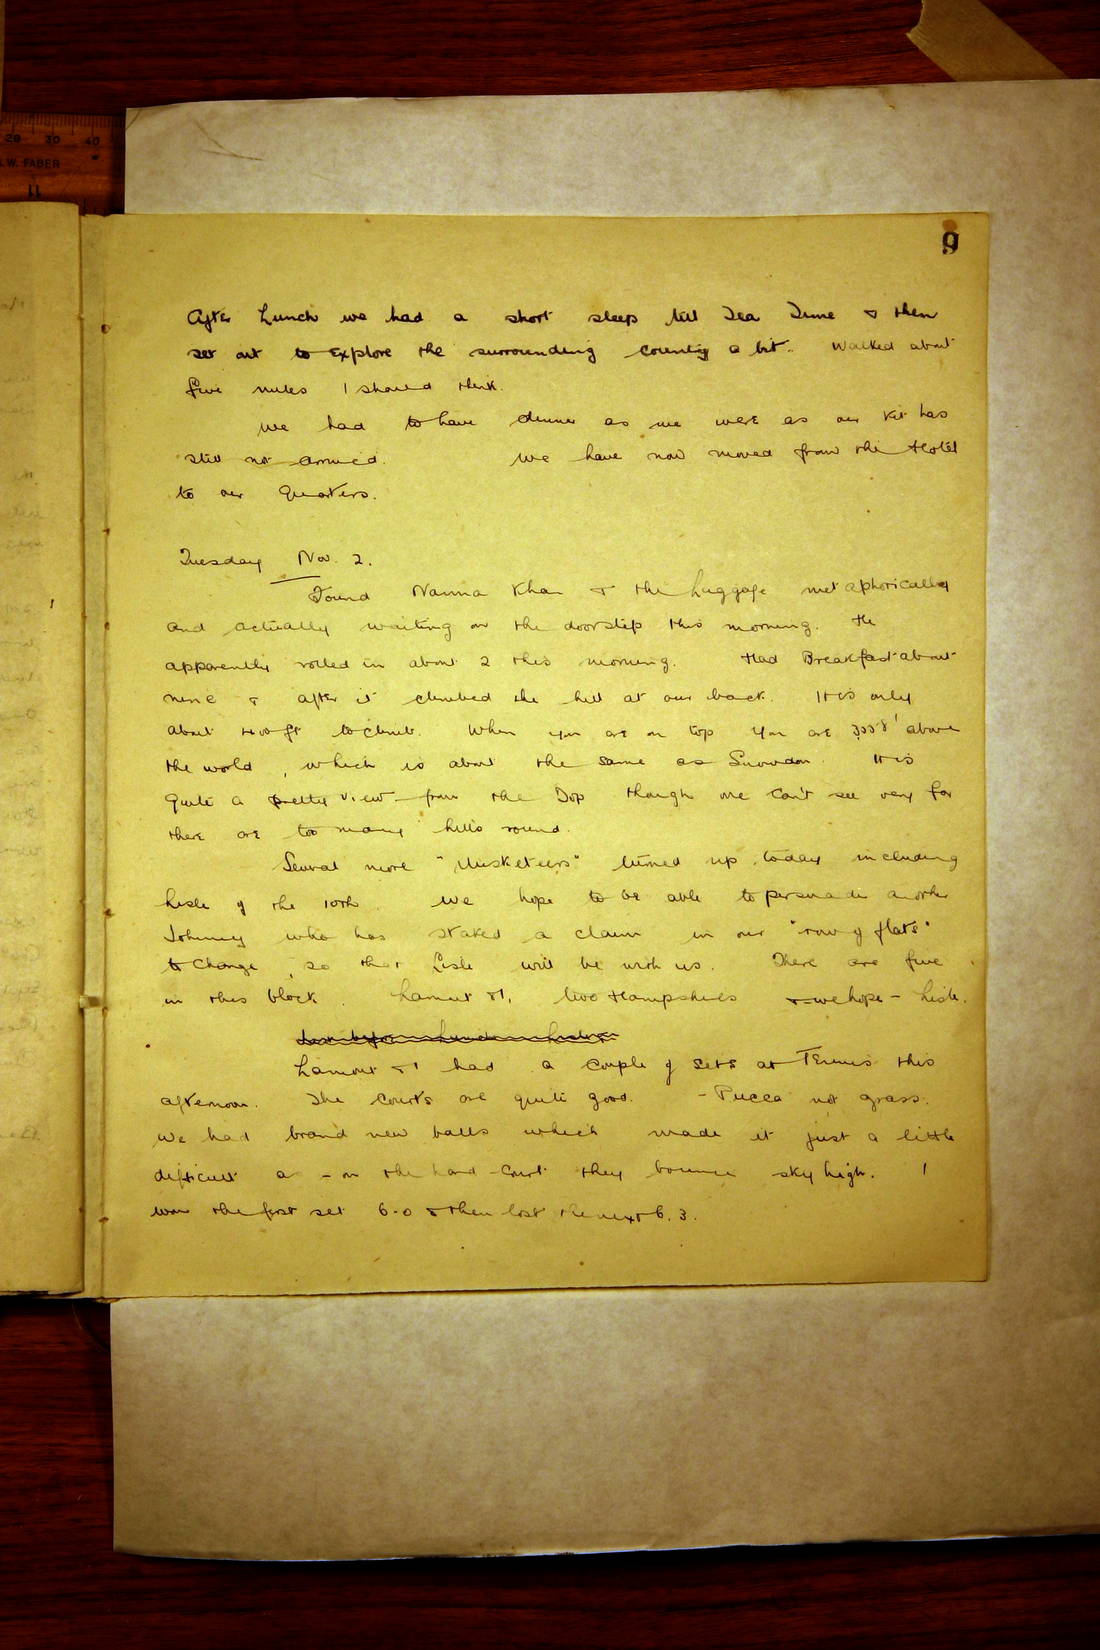 20 30 40
W. FABER
11
9
After Lunch we had a short sleep till Tea Time & then
set out to explore the surrounding country a bit. Walked about
five miles I should think.
We had to have dinner as we were as our kit has
still not arrived. We have now moved from the Hotel
to our Quarters.
Tuesday Nov. 2.
Found Khan & the Luggage metaphorically
and actually waiting on the doorstep this morning. He
apparently rolled in about 2 this morning. Had Breakfast about
nine & after it climbed the hill at our back. It is only
about ft to climb. When you are on top you are above
the world, which is about the same as Snowdon. It is
Quite a pretty view from the Top though one can't see very far
there are too many hills round.
Several more "Musketeers" turned up today including
Lisle of the 10th. We hope to be able to persuade another
Johnny who has staked a claim in our "row of flats"
to change, so that Lisle will be with us. There are five
in this block. Lamont & I, two Hampshires & - we hope - Lisle.
Lamont & I had a couple of sets at Tennis this
afternoon. The Courts are quite good. - Pucca not grass.
We had brand new balls which made it just a little
difficult as - on the hard court they bounce sky high. I
won the first set 6-0 & then lost the next 6.3.